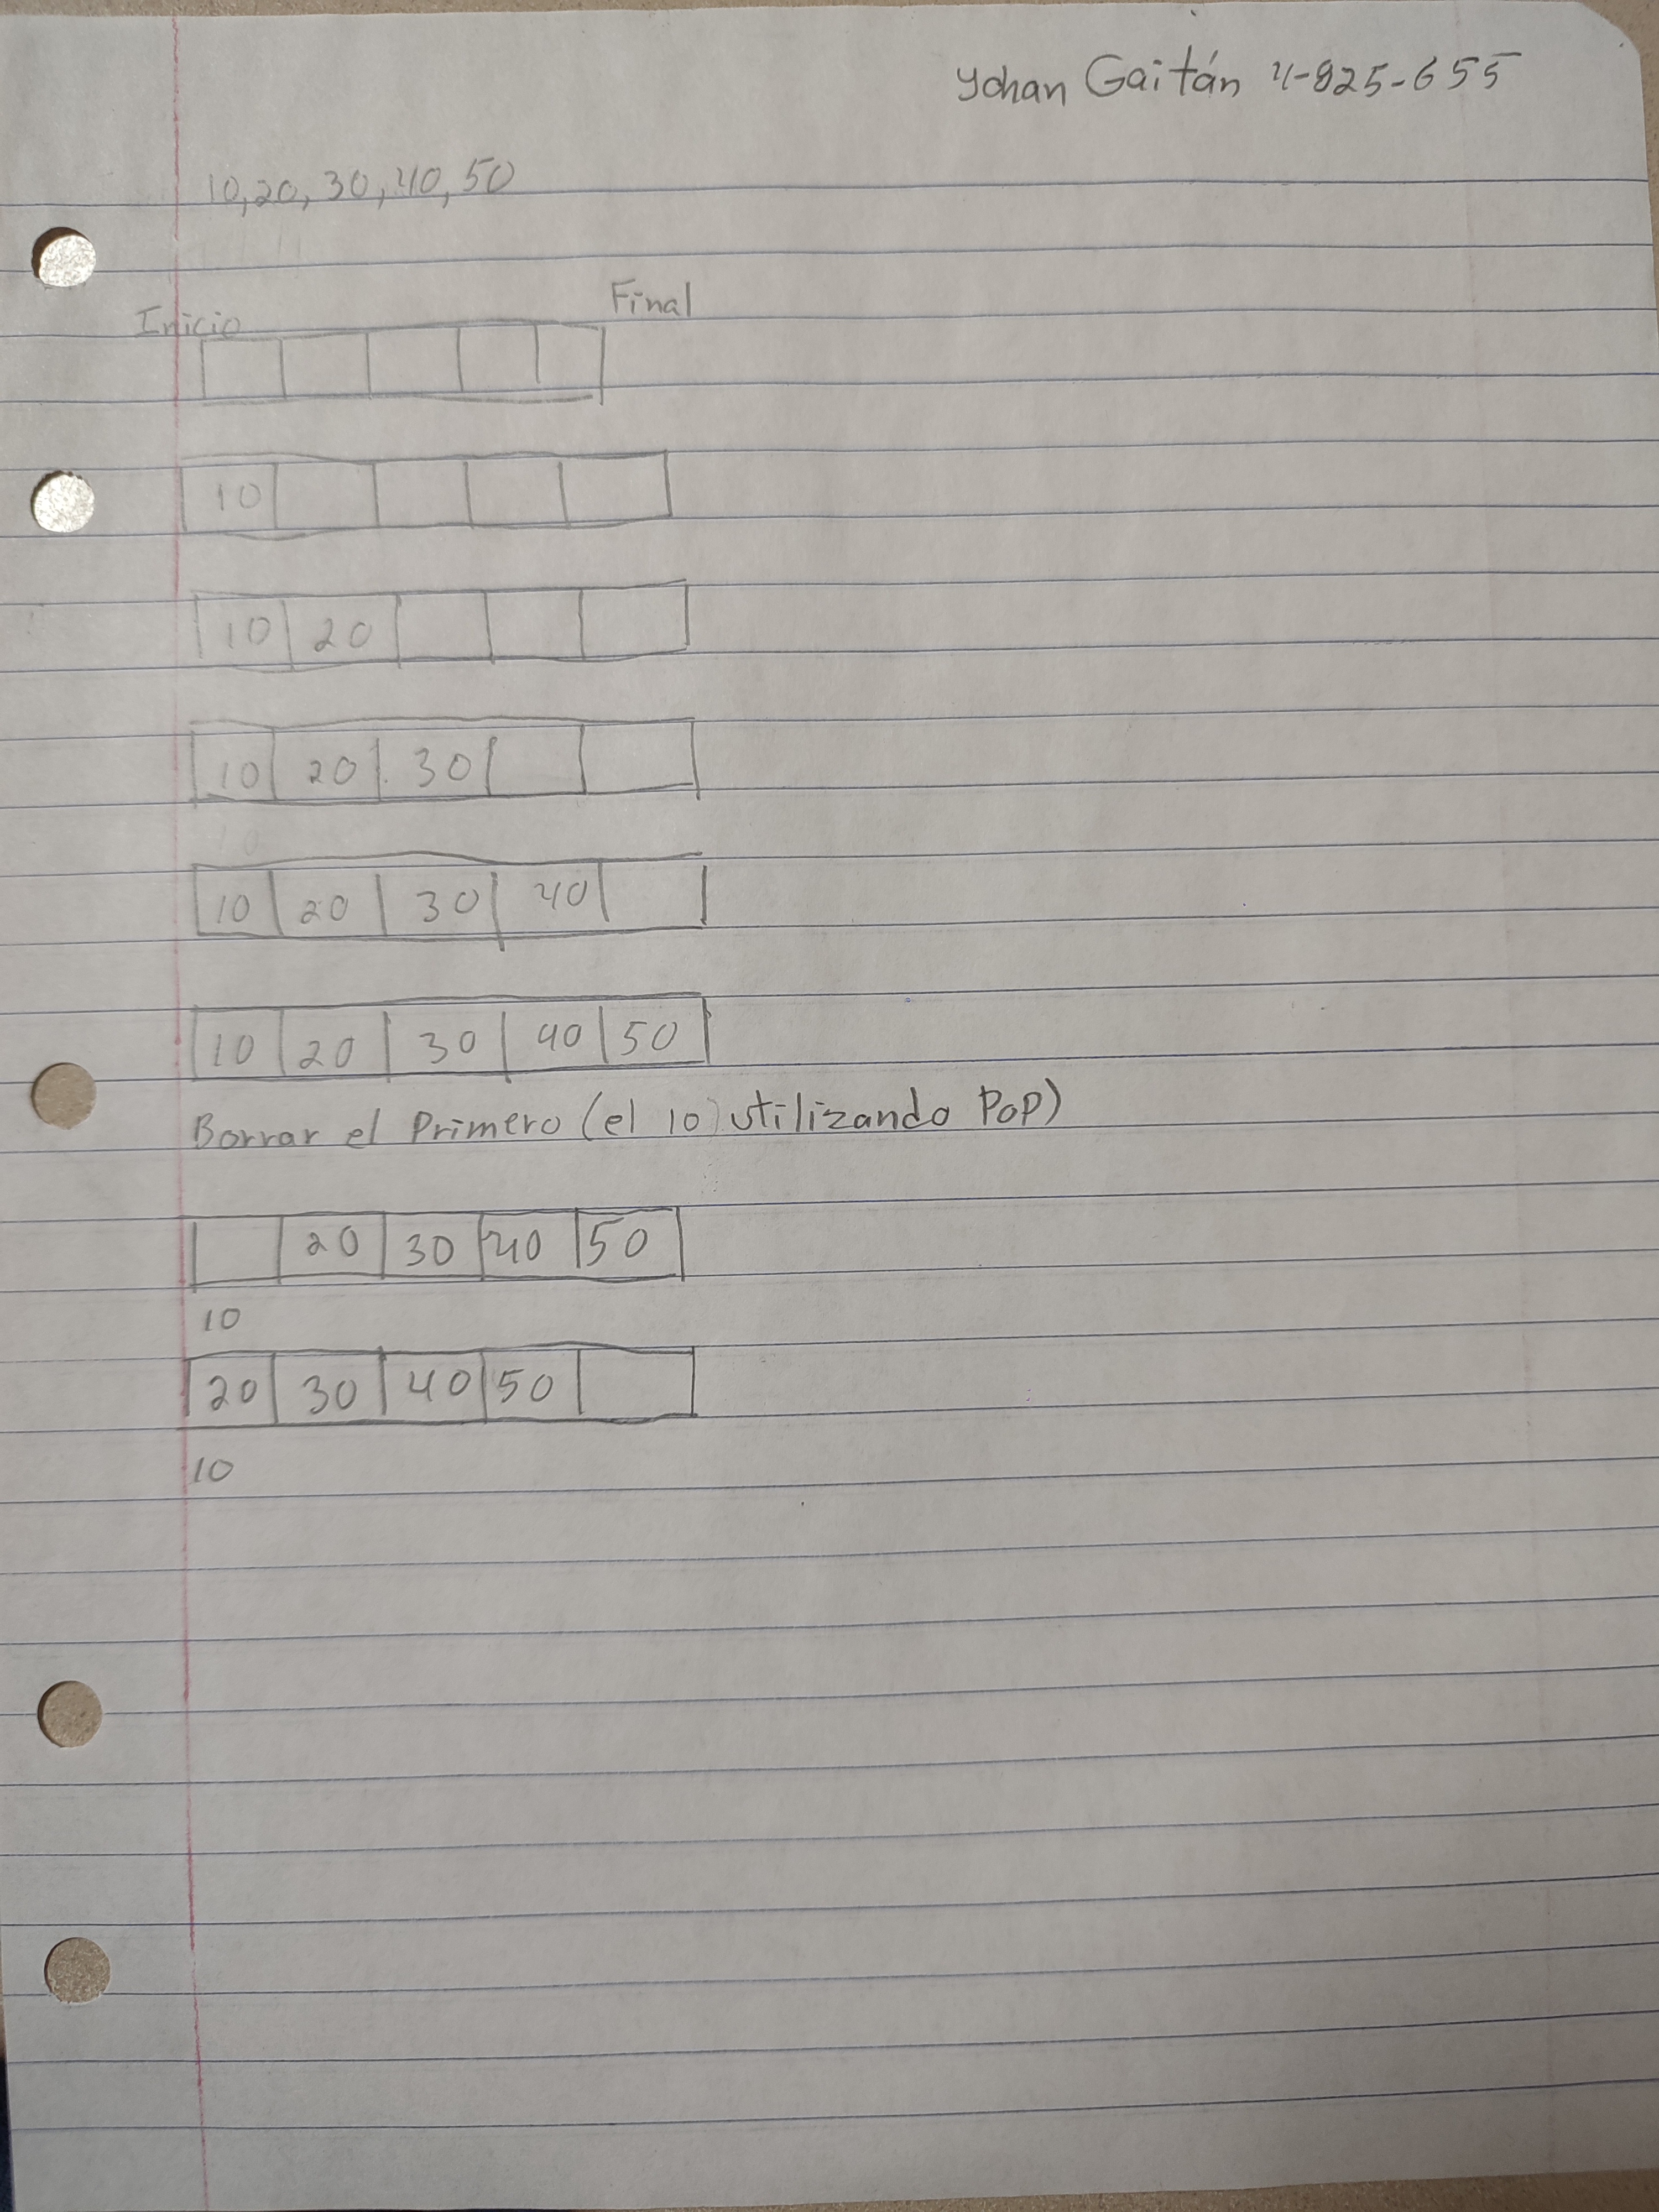 Yohan Gaitán 4-825-655
10,20,30,40,50
Inicio Final
10
10 20
10 20 30
10 20 30 40
10 20 30 40 50
Borrar el Primero (el 10) utilizando POP)
20 30 40 50
10
20 30 40 50
10